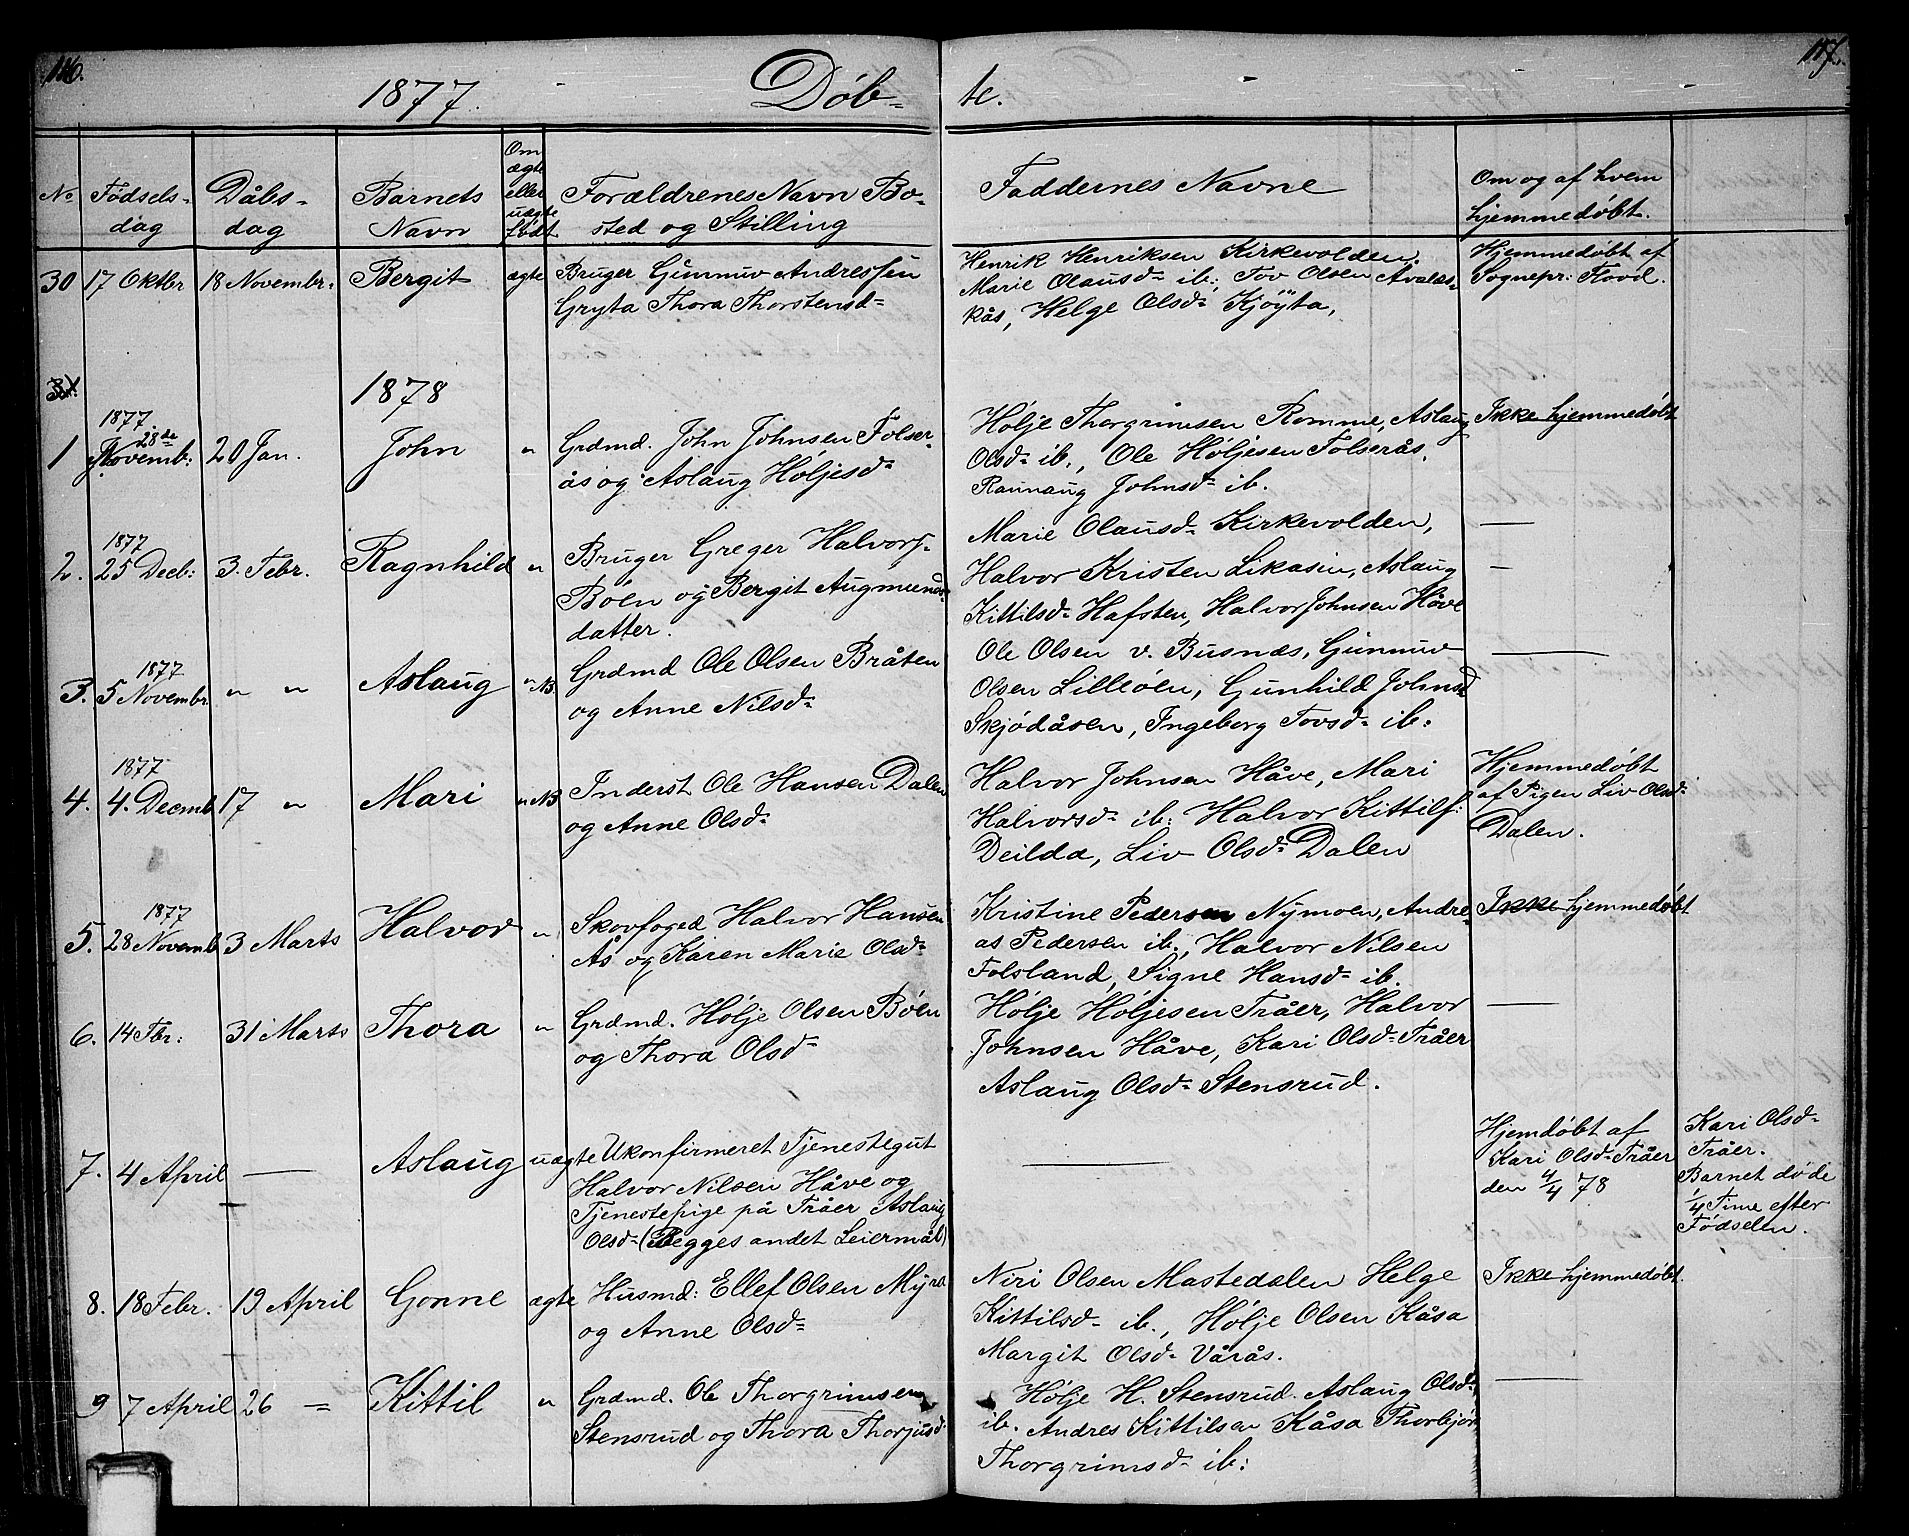 116.
117.
1877. Döb-
te.
No
Födsels-
dag
Dåbs-
dag
Barnets
Navn
Om
ægte
eller
uægte
födt
Forældrenes Navn Bo-
sted og Stilling
Faddernes Navne
Om og af hvem
hjemmedöbt.
30 17 Oktbr 18 Novembr. Bergit ægte
Bruger Gunnuv Andressen
Gryta Thora Thorstensd=
Henrik Henriksen Kirkevolden.
Marie Olausd= ib., Tov Olsen Avalas-
kås, Helge Olsd= Kjöÿta,
Hjemmedöbt af
Sognepr: Flood.
31
1878
1877
1 28de Novemb: 20 Jan. John "
Grdmd. John Johnsen Folser-
ås og Aslaug Höljesd=
Hölje Thorgrimsen Romme, Aslaug
Olsd= ib., Ole Höljesen Folserås,
Raunaug Johnsd= ib.
Ikke hjemmedöbt
1877
2. 25 Decb: 3. Febr. Ragnhild "
Bruger Greger Halvors.
Böen og Bergit Augmunds-
datter.
Marie Olausd= Kirkevolden,
Halvor Kristen Likasin, Aslaug
Kittilsd= Hafsten, Halvor Johnsen Håve
—
—
1877
3. 5 Novembr. " " Aslaug " NB
Grdmd Ole Olsen Bråten
og Anne Nilsd=
Ole Olsen v. Busnæs, Gunnuv
Olsen Lilleöen, Gunhild Johnsd
Skjödåsen, Ingeborg Tovsd= ib:
—
1877
4. 4. Decmb 17 " Mari " NB
Inderst Ole Hansen Dalen
og Anne Olsd=
Halvor Johnsen Håve, Mari
Halvorsd= ib: Halvor Kittils:
Deilda, Liv Olsd= Dalen
Hjemmedöbt
af Pigen Liv Olsd=
Dalen.
1877
5. 28 Novemb 3 Marts Halvor "
Skovfoged Halvor Hansen
Ås og Karen Marie Olsd=
Kristine Pedersen Nymoen, Andre-
as Pedersen ib., Halvor Nilsen
Folsland, Signe Hansd= ib.
Ikke hjemmedöbt
6. 14 Fbr: 31 Marts Thora "
Grdmd. Hölje Olsen Böen
og Thora Olsd=
Hölje Höljesen Tråer, Halvor
Johnsen Håve, Kari Olsd= Tråer
Aslaug Olsd= Stensrud.
—
7. 4 April — Aslaug uægte
Ukonfirmeret Tjenestegut
Halvor Nilsen Håve og
Tjenestepige på Tråer Aslaug
Olsd= (Begges andet Leiermål)
—
Hjemdöbt af
Kari Olsd= Tråer
den 4/4 78
Kari Olsd=
Tråer.
Barnet döde
1/4 Time efter
Födselen.
8. 18 Febr. 19 April Gonne ægte
Husmd: Ellef Olsen Myra
og Anne Olsd=
Niri Olsen Mastedalen Helge
Kittilsd= ib., Hölje Olsen Kåsa
Margit Olsd= Vårås.
Ikke hjemmedöbt.
9 7 April 26 = Kittil "
Grdmd. Ole Thorgrimsen
Stensrud og Thora Thorjusd=
Hölje H. Stensrud. Aslaug Olsd=
ib. Andres Kittilsen Kåsa Thorbjör
Thorgrimsd= ib:
—